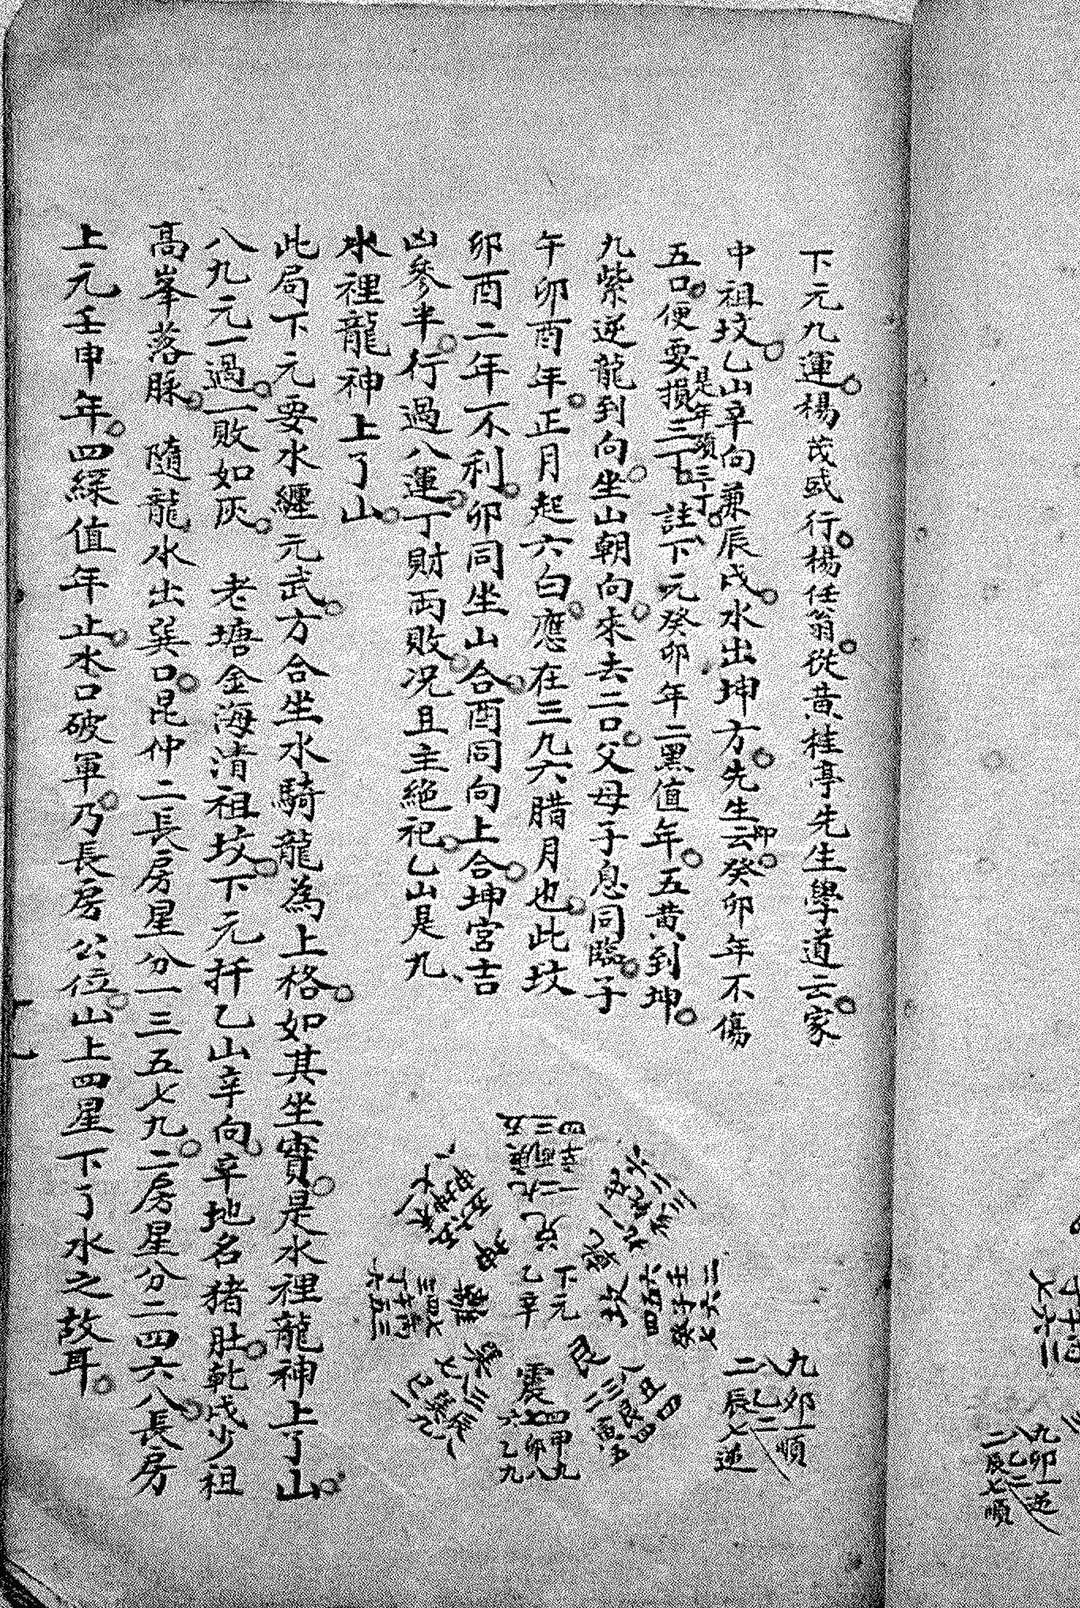 下元九運楊茂或行楊任翁從黃桂亭先生學道云家
中祖坟乙山辛向兼辰戌水出坤方先生云卯癸卯年不傷
五口便要損三丁
是年項三丁
註下元癸卯年二黑值年五黃到坤
九紫逆龍到向坐山朝向來去二口父母子息同臨子
午卯酉年正月起六白應在三九六腊月也此坟
卯酉二年不利卯同坐山合酉同向上合坤宮吉
凶參半行過八運丁財両敗况且主絕祀乙山是九
水裡龍神上了山
此局下元要水纏元武方合坐水騎龍為上格如其坐實是水裡龍神上了山
八九元一過一敗如灰 老塘金海清祖坟下元扦乙山辛向辛地名猪肚乾戌少祖
高峯落脉 隨龍水出巽口昆仲二長房星分一三五七九二房星分二四六八長房
上元壬申年四綠值年止水口破軍乃長房公位山上四星下了水之故耳
下元
乙辛
兌
乾
坎
艮
震
巽
離
坤
九卯一順
八乙二
二辰七逆
九卯一逆
八乙二
二辰七順